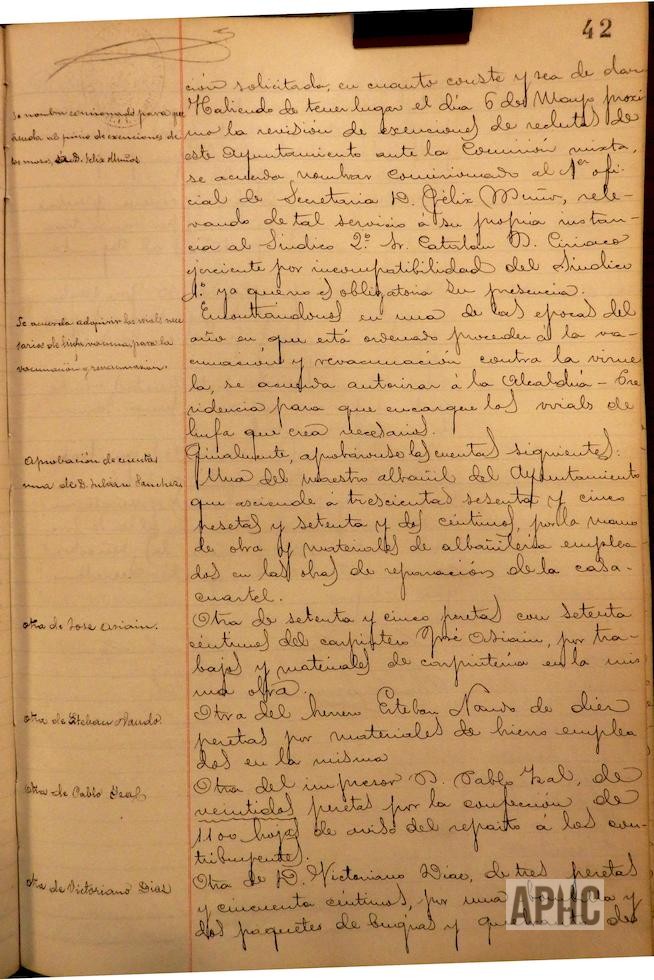 42
ción solicitada, en cuanto conste y sea de dar
Se nombra comisionado para que
acuda al juicio de exenciones de
los mozos, a D. Felix Muñoz
Habiendo de tener lugar el día 6 de Mayo proxi
mo la revisión de exenciones de reclutas de
este Ayuntamiento ante la Comisión mixta,
se acuerda nombrar Comisionado al 1er ofi-
cial de Secretaria D. Félix Muñoz, rele-
vando de tal servicio á su propia instan-
cia al Sindico 2º Sr. Catalán D. Ciriaco
ejerciente por incompatibilidad del Sindico
1º ya que no es obligatoria su presencia.
Se acuerda adquirir los vials nece
sarios de linfa vacuna, para la
vacunación y revacunación.
Encontrándonos en una de las epocas del
año en que está ordenado proceder á la va-
cunación y revacunación contra la virue
la, se acuerda autorizar á la Alcaldía-Pre
sidencia para que encargue los vials de
linfa que crea necesarios.
Aprobación de cuentas
una de D. Julián Sanchez
Finalmente, aprobáronse las cuentas siguientes:
Una del maestro albañil del Ayuntamiento
que asciende á trescientas sesenta y cinco
pesetas y setenta y dos céntimos, por la mano
de obra y materiales de albañilería emplea-
dos en las obras de reparación de la casa-
cuartel.
Otra de José Asiain.
Otra de setenta y cinco pesetas con setenta
céntimos del carpintero José Asiain, por tra-
bajos y materiales de carpintería en la mis
ma obra.
Otra de Esteban Nando
Otra del herrero Esteban Nando de diez
pesetas por materiales de hierro emplea
dos en la misma
Otra de Pablo Yzal
Otra del impresor D. Pablo Yzal, de
veintidos pesetas por la confección de
1100 hojas de aviso del reparto á los con-
tribuyentes.
Otra de Victoriano Diaz
Otra de D. Victoriano Diaz, de tres pesetas
y cincuenta céntimos, por una bombilla y
dos paquetes de bugias y de
APHC